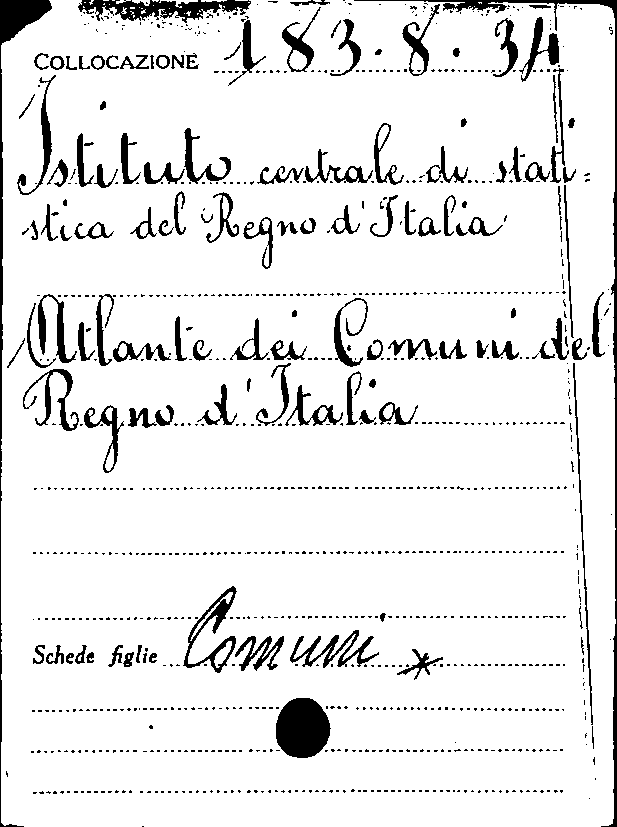 COLLOCAZIONE 183.8.34
Istituto centrale di stati=
stica del Regno d'Italia
Atlante dei Comuni del
Regno d'Italia
Schede figlie Comuni *